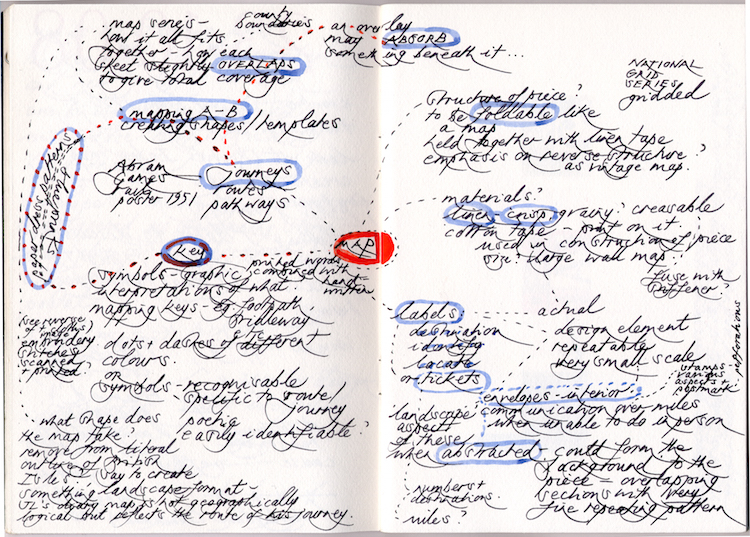 map series -
how it all fits
together - how each
sheet slightly OVERLAPS
to give total coverage
county
boundaries
an overlay
may ABSORB
something beneath it...
mapping A-B
creating shapes/templates
Abram
Games
poster 1951
Journeys
routes
pathways
paper dress patterns
MAP
Key
printed words
combined with
hand-
written
symbols - graphic
interpretations of what
mapping keys - eg footpath
bridleway
dots + dashes of different
colours.
or
symbols - recognisable
specific to route/
journey
poetic
easily identifiable?
see reverse
image
embroidery
stitches
scanned
+ printed
what shape does
the map take?
remove from literal
outline of British
Isles? Way to create
something landscape format -
JL's diary map is not geographically
logical but reflects the route of his journey.
NATIONAL
GRID
SERIES
gridded
structure of piece?
to be foldable like
a map
held together with linen tape
emphasis on reverse structure?
as vintage map.
materials?
linen - crisp, grainy? creasable
cotton tape - print on it
used in construction of piece
size? large wall map
fuse with
stiffener?
labels
destination
identify
locate
or tickets
actual
design element
repeatable
very small scale
perforations
stamps
various
aspects +
postmark
envelopes - interior
communication over miles
when unable to do in person
landscape
aspect
of these
when abstracted - could form the
background to the
piece - overlapping
sections with very
fine repeating pattern
numbers +
destinations.
miles?